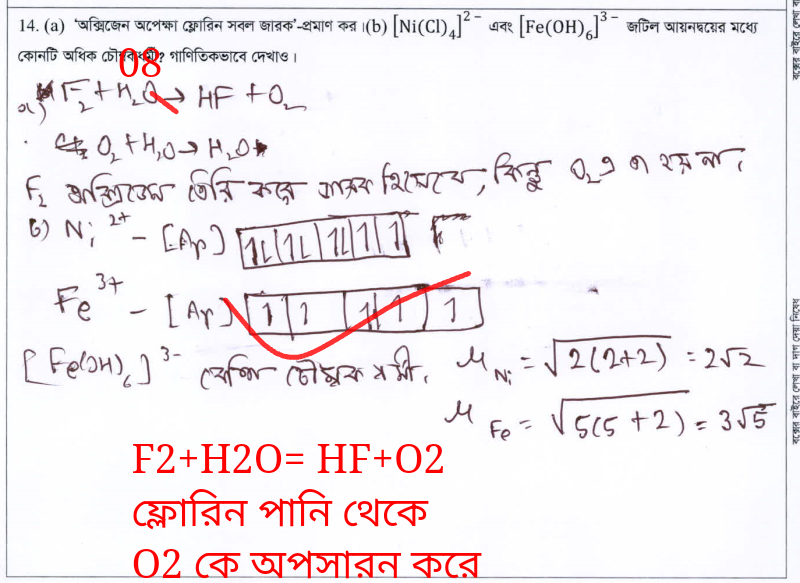 14. (a) 'অক্সিজেন অপেক্ষা ফ্লোরিন সবল জারক'-প্রমাণ কর।(b) [Ni(Cl)₄]²⁻ এবং [Fe(OH)₆]³⁻ জটিল আয়নদ্বয়ের মধ্যে
কোনটি অধিক চৌম্বকধর্মী? গাণিতিকভাবে দেখাও।
08
a) F₂ + H₂O → HF + O₂
O₂ + H₂O → H₂O
F₂ অক্সিজেন তৈরি করে জারক হিসেবে, কিন্তু O₂ এ তা হয় না।
b) Ni²⁺ - [Ar] 1L 1L 1L 1 1
Fe³⁺ - [Ar] 1 1 1 1 1
[Fe(OH)₆]³⁻ বেশি চৌম্বক ধর্মী। μNi = √2(2+2) = 2√2
μFe = √5(5+2) = 3√5
F2+H2O= HF+O2
ফ্লোরিন পানি থেকে
O2 কে অপসারন করে